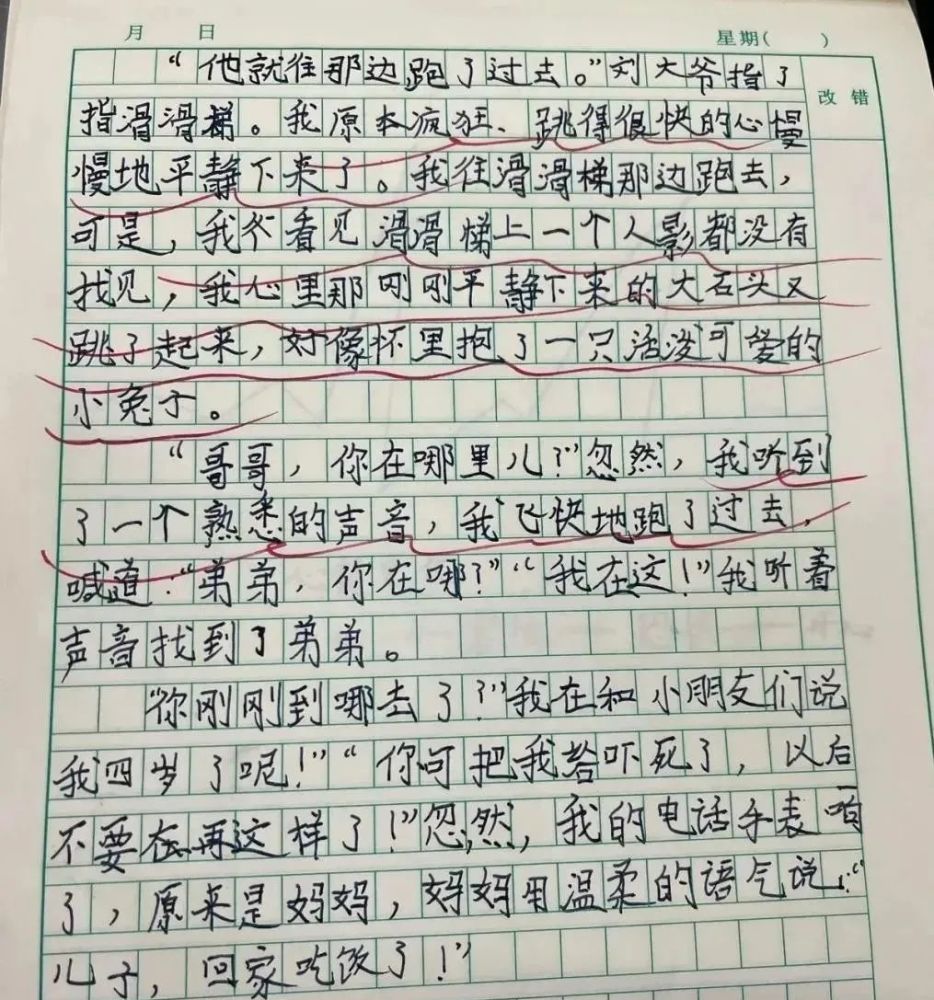 月 日 星期( )
改错
“他就往那边跑了过去。”刘大爷指了
指滑滑梯。我原本疯狂、跳得很快的心慢
慢地平静下来了。我往滑滑梯那边跑去,
可是,我看见滑滑梯上一个人影都没有
找见,我心里那刚刚平静下来的大石头又
跳了起来,好像怀里抱了一只活泼可爱的
小兔子。
“哥哥,你在哪里儿?”忽然,我听到
了一个熟悉的声音,我飞快地跑了过去,
喊道:“弟弟,你在哪?”“我在这!”我听着
声音找到了弟弟。
“你刚刚到哪去了?”我在和小朋友们说
我四岁了呢!”“你可把我给吓死了,以后
不要在再这样了!”忽然,我的电话手表响
了,原来是妈妈,妈妈用温柔的语气说:“
儿子,回家吃饭了!”